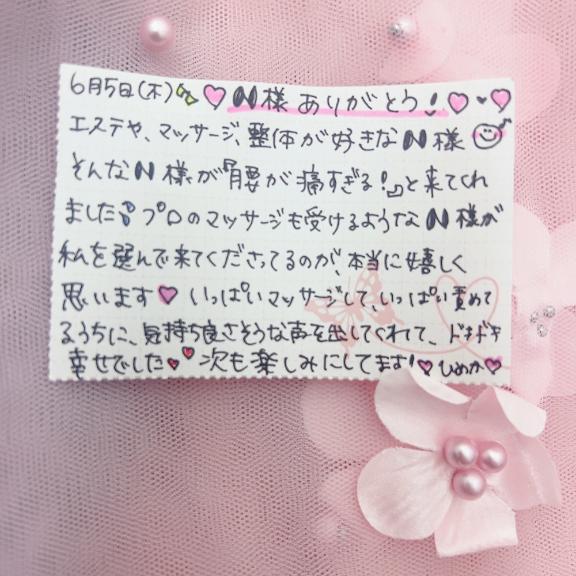 6月5日(木)♡N様ありがとう!♡♥♡
エステや、マッサージ、整体が好きなN様
そんなN様が『腰が痛すぎる!』と来てくれ
ました プロのマッサージも受けるようなN様が
私を選んで来てくださってるのが、本当に嬉しく
思います♡ いっぱいマッサージして、いっぱい責めて
るうちに、気持ち良さそうな声を出してくれて、ドキドキ
幸せでした♥♥ 次も楽しみにしてます!♡ひめか♡